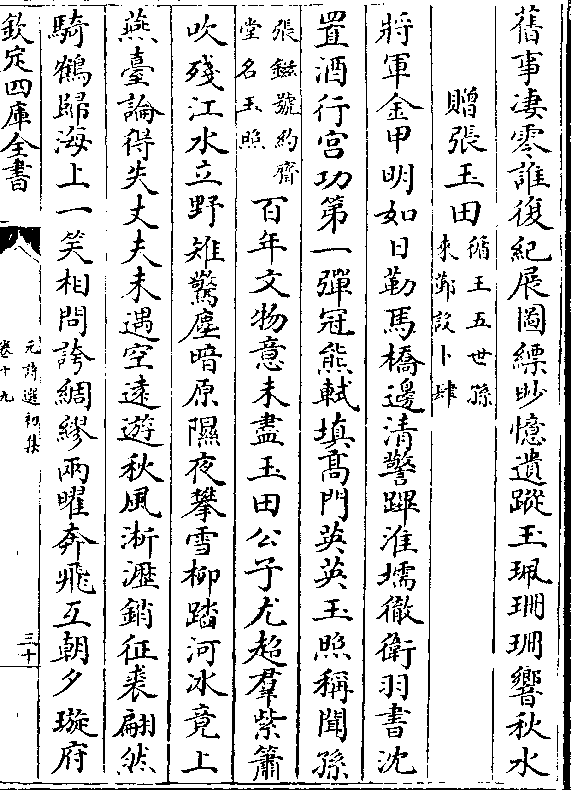 舊事凄零誰復紀展圖縹眇憶遺蹤玉珮珊珊響秋水
贈張玉田循王五世孫
來鄞設卜肆
將軍金甲明如日勒馬橋邊清警蹕淮壖徹衛羽書沈
置酒行宮功第一彈冠熊軾填高門英英玉照稱聞孫
張鎡號約齋
堂名玉照
百年文物意未盡玉田公子尤超羣紫簫
吹殘江水立野雉驚塵暗原隰夜攀雪柳踏河冰竟上
燕臺論得失丈夫未遇空遠遊秋風淅瀝銷征裘翩然
騎鶴歸海上一笑相問誇綢繆兩曜奔飛互朝夕璇府
欽定四庫全書
元詩選初集
卷十九
三十